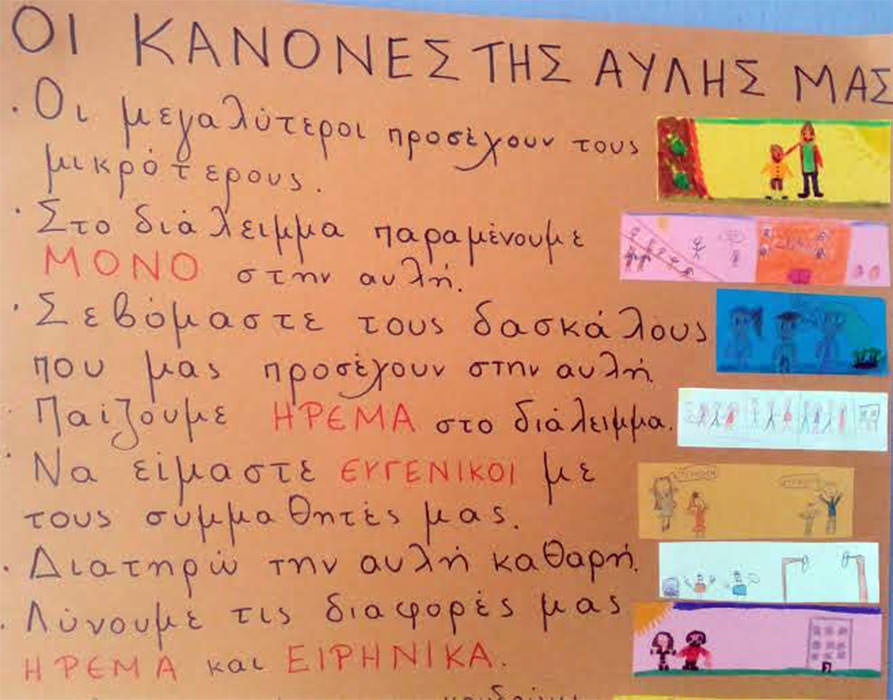 ΟΙ ΚΑΝΟΝΕΣ ΤΗΣ ΑΥΛΗΣ ΜΑΣ
· Οι μεγαλύτεροι προσέχουν τους
μικρότερους.
· Στο διάλειμμα παραμένουμε
ΜΟΝΟ στην αυλή.
· Σεβόμαστε τους δασκάλους
που μας προσέχουν στην αυλή
· Παίζουμε ΗΡΕΜΑ στο διάλειμμα.
· Να είμαστε ΕΥΓΕΝΙΚΟΙ με
τους συμμαθητές μας.
· Διατηρώ την αυλή καθαρή.
· Λύνουμε τις διαφορές μας
ΗΡΕΜΑ και ΕΙΡΗΝΙΚΑ.